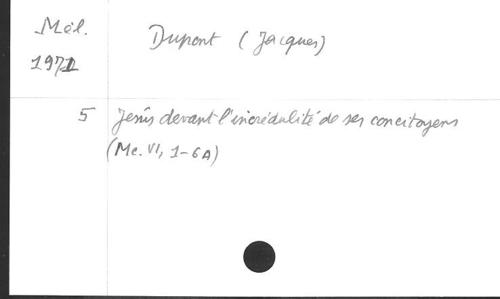 Mél.
Dupont (Jacques)
1971
5 Jésus devant l'incrédulité de ses concitoyens
(Mc. VI, 1-6A)